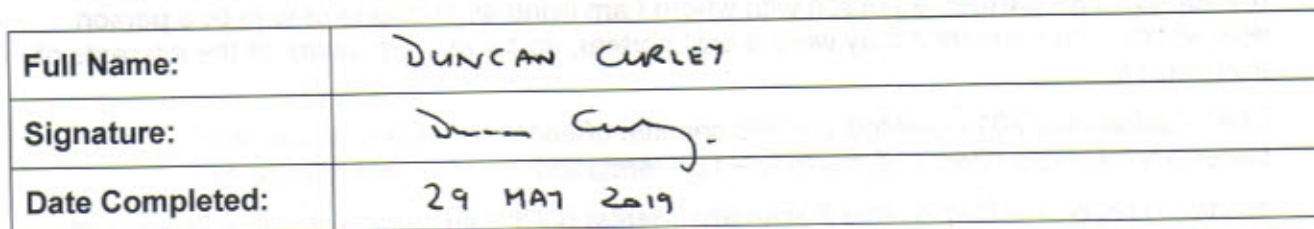 Full Name: DUNCAN CURLEY
Signature:
Date Completed: 29 MAY 2019